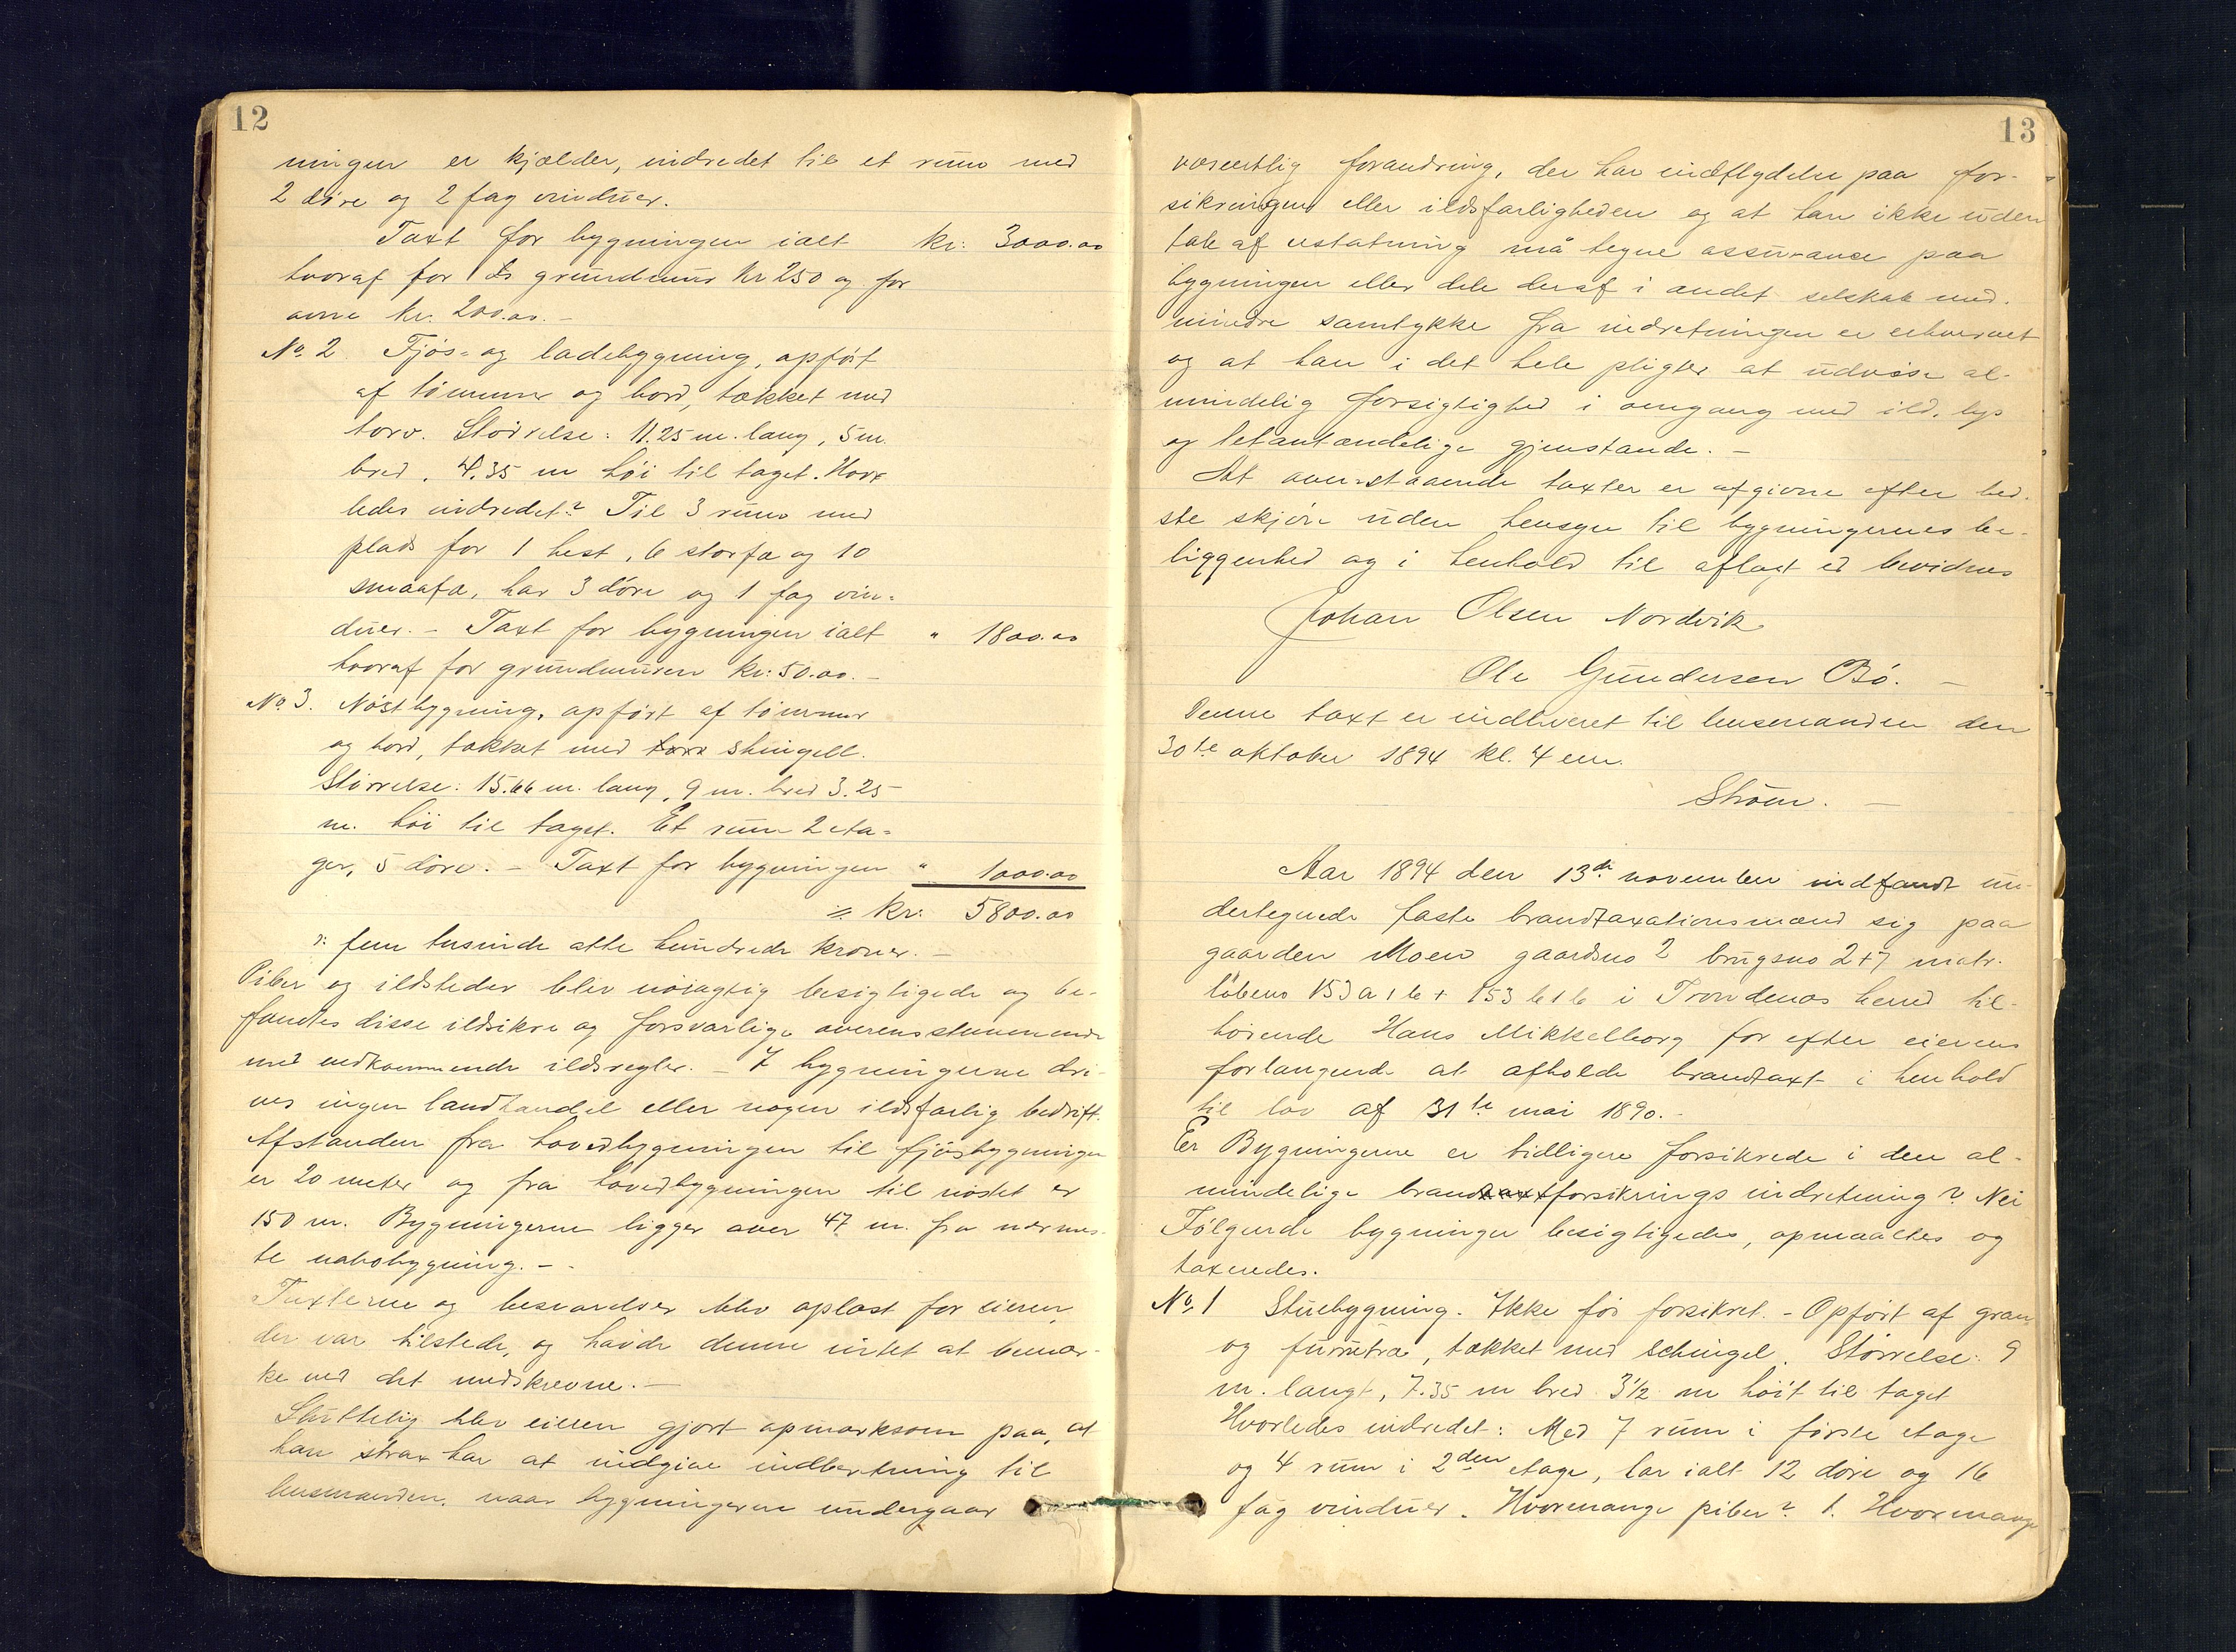 12
ningen er kjælder, indredet til et rum med
2 döre og 2 fag vinduer.
Taxt for bygningen ialt kr: 3000.00
hvoraf for grundmur kr 250 og for
ovne kr. 200.00. -
No 2. Fjös- og ladebygning, opfört
af tömmer og bord, tækket med
torv. Störrelse: 11.25 m. lang, 5 m.
bred, 4.35 m höi til taget. Hvor
ledes indredet? Til 3 rum med
plads for 1 hest, 6 storfæ og 10
smaafæ, har 3 döre og 1 fag vin-
duer. - Taxt for bygningen ialt " 1800.00
hvoraf for grundmuren kr: 50.00. -
No 3. Nöstbygning, opfört af tömmer
og bord, tækket med torv shingell.
Störrelse: 15.66 m. lang, 9 m. bred 3.25
m. höi til taget. Et rum 2 eta-
ger, 5 döre. - Taxt for bygningen " 1000.00
= kr: 5800.00
ɔ: fem tusinde otte hundrede kroner. -
Piber og ildsteder blev nöiagtig besigtigede og be-
fandtes disse ildsikre og forsvarlige overensstemmende
med vedkommende ildsregler. - I bygningerne dri-
ves ingen landhandel eller nogen ildsfarlig bedrift.
Afstanden fra hovedbygningen til fjösbygningen
er 20 meter og fra hovedbygningen til nöstet er
150 m. Bygningerne ligger over 47 m. fra nærmes-
te nabobygning. -
Taxterne og besvarelser blev oplæst for eieren,
der var tilstede, og havde denne intet at bemær-
ke ved det nedskrevne. -
Sluttelig blev eieren gjort opmærksom paa, at
han strax har at indgive indberetning til
lensmanden, naar bygningerne undergaar
13
væsentlig forandring, der har indflydelse paa for-
sikringen eller ildsfarligheden og at han ikke uden
tab af erstatning må tegne assurance paa
bygningen eller dele deraf i andet selskab med-
mindre samtykke fra indretningen er erhvervet
og at han i det hele pligter at udvise al-
mindelig forsigtighed i omgang med ild, lys
og letantændelige gjenstande. -
At ovenstaaende taxter er afgivne efter bed-
ste skjön uden hensyn til bygningernes be-
liggenhed og i henhold til aflagt ed bevidnes
Johan Olsen Nordvik
Ole Gundersen Bö. -
Denne taxt er indleveret til lensmanden den
30te oktober 1894 kl. 4 em.
Ström. -
Aar 1894 den 13de november indfandt un-
dertegnede faste brandtaxationsmænd sig paa
gaarden Moen gaardsno 2 brugsno 2+7 matr.
löbeno 153 a 1 b + 153 b 1 b i Trondenæs herred til-
hörende Hans Mikkelborg for efter eierens
forlangende at afholde brandtaxt i henhold
til lov af 31te mai 1890. -
Er Bygningerne er tidligere forsikrede i den al-
mindelige brandtaxtforsikrings indretning? Nei
Fölgende bygninger besigtigedes, opmaaltes og
taxeredes.
No. 1 Stuebygning. Ikke för forsikret. - Opfört af gran
og furutræ, tækket med schingel. Störrelse: 9
m. langt, 7.35 m bred 3 1/2 m höit til taget
Hvorledes indredet: Med 7 rum i förste etage
og 4 rum i 2den etage, har ialt 12 döre og 16
fag vinduer. Hvormange piber? 1. Hvormange